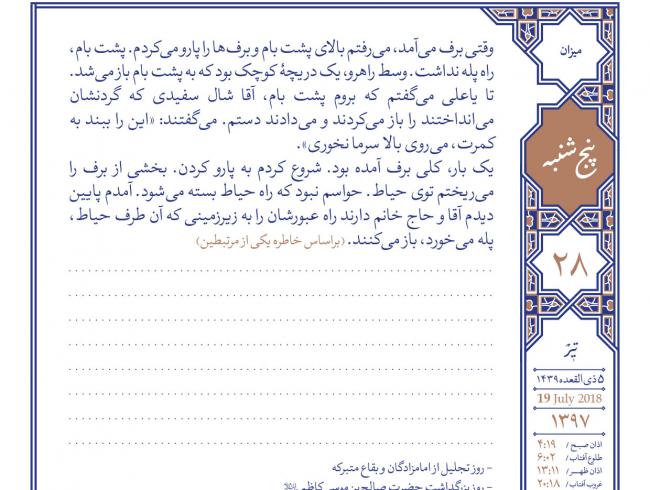 وقتی برف می‌آمد، می‌رفتم بالای پشت بام و برف‌ها را پارو می‌کردم. پشت بام،
راه پله نداشت. وسط راهرو، یک دریچهٔ کوچک بود که به پشت بام باز می‌شد.
تا یاعلی می‌گفتم که بروم پشت بام، آقا شال سفیدی که گردنشان
می‌انداختند را باز می‌کردند و می‌دادند دستم. می‌گفتند: «این را ببند به
کمرت، می‌روی بالا سرما نخوری».
یک بار، کلی برف آمده بود. شروع کردم به پارو کردن. بخشی از برف را
می‌ریختم توی حیاط. حواسم نبود که راه حیاط بسته می‌شود. آمدم پایین
دیدم آقا و حاج خانم دارند راه عبورشان را به زیرزمینی که آن طرف حیاط،
پله می‌خورد، باز می‌کنند. (براساس خاطره یکی از مرتبطین)
- روز تجلیل از امامزادگان و بقاع متبرکه
- روز بزرگداشت حضرت صالح بن موسی کاظم
میزان
پنج شنبه
۲۸
تیر
۵ ذی القعده ۱۴۳۹
19 July 2018
۱۳۹۷
اذان صبح / ۴:۱۹
طلوع آفتاب / ۶:۰۲
اذان ظهر / ۱۳:۱۱
غروب آفتاب / ۲۰:۱۸